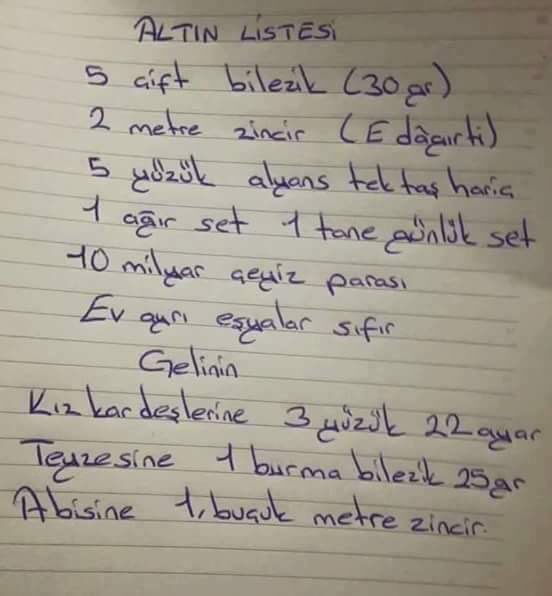 ALTIN LİSTESİ
5 çift bilezik (30 gr)
2 metre zincir (E dâğırti)
5 yüzük alyans tek taş hariç
1 ağır set 1 tane günlük set
10 milyar çeyiz parası
Ev ayrı eşyalar sıfır
Gelinin
Kız kardeşlerine 3 yüzük 22 ayar
Teyzesine 1 burma bilezik 25 gr
Abisine 1,buçuk metre zincir.